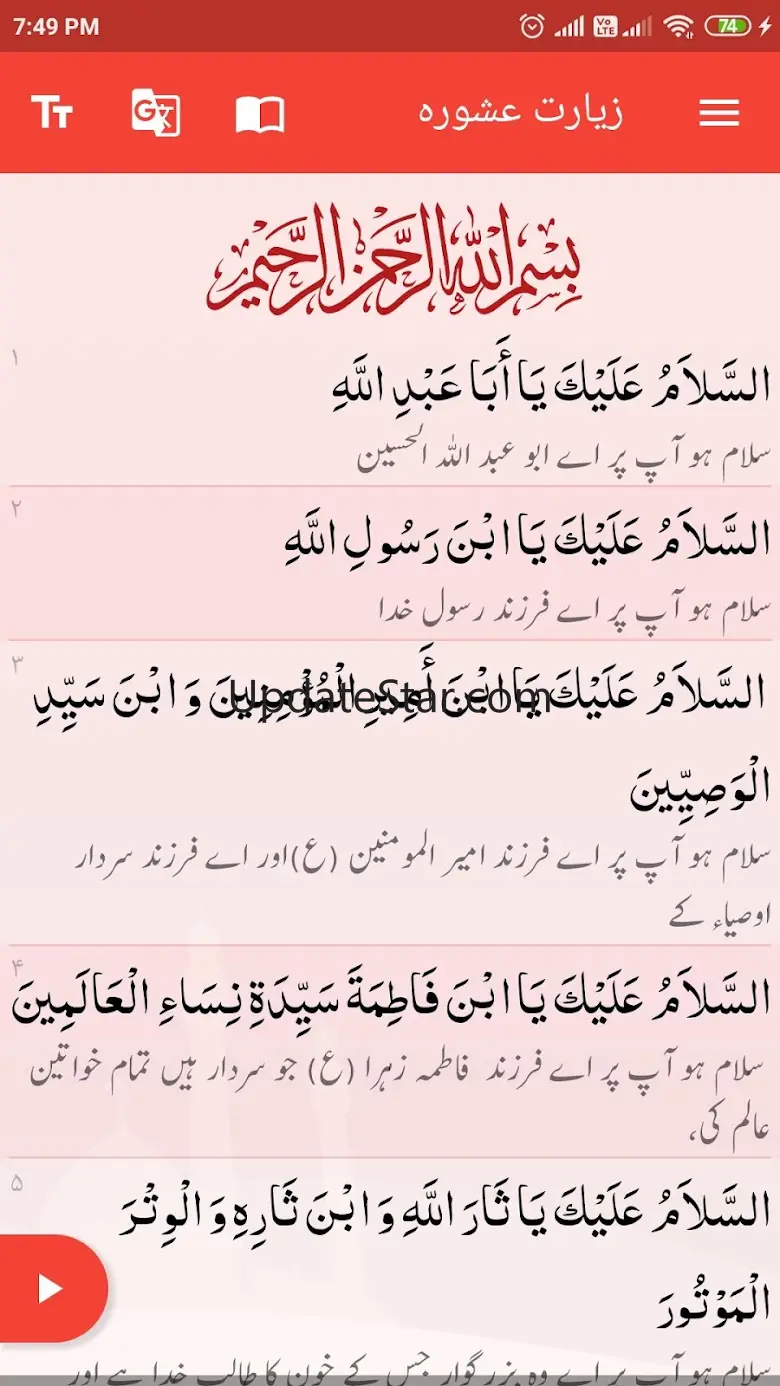 7:49 PM
Vo LTE
74
زیارت عشورہ
بسم الله الرحمن الرحيم
۱
السَّلاَمُ عَلَيْكَ يَا أَبَا عَبْدِ اللَّهِ
سلام ہو آپ پر اے ابو عبد اللہ الحسین
۲
السَّلاَمُ عَلَيْكَ يَا ابْنَ رَسُولِ اللَّهِ
سلام ہو آپ پر اے فرزند رسول خدا
۳
السَّلاَمُ عَلَيْكَ يَا ابْنَ أَمِيرِ الْمُؤْمِنِينَ وَ ابْنَ سَيِّدِ
UpdateStar.com
الْوَصِيِّينَ
سلام ہو آپ پر اے فرزند امیر المومنین (ع)اور اے فرزند سردار
اوصیاء کے
۴
السَّلاَمُ عَلَيْكَ يَا ابْنَ فَاطِمَةَ سَيِّدَةِ نِسَاءِ الْعَالَمِينَ
سلام ہو آپ پر اے فرزند فاطمہ زہرا (ع) جو سردار ہیں تمام خواتین
عالم کی،
۵
السَّلاَمُ عَلَيْكَ يَا ثَارَ اللَّهِ وَ ابْنَ ثَارِهِ وَ الْوِتْرَ
الْمَوْتُورَ
سلام ہو آپ پر اے وہ بزرگوار جس کے خون کا طالب خدا ہے اور